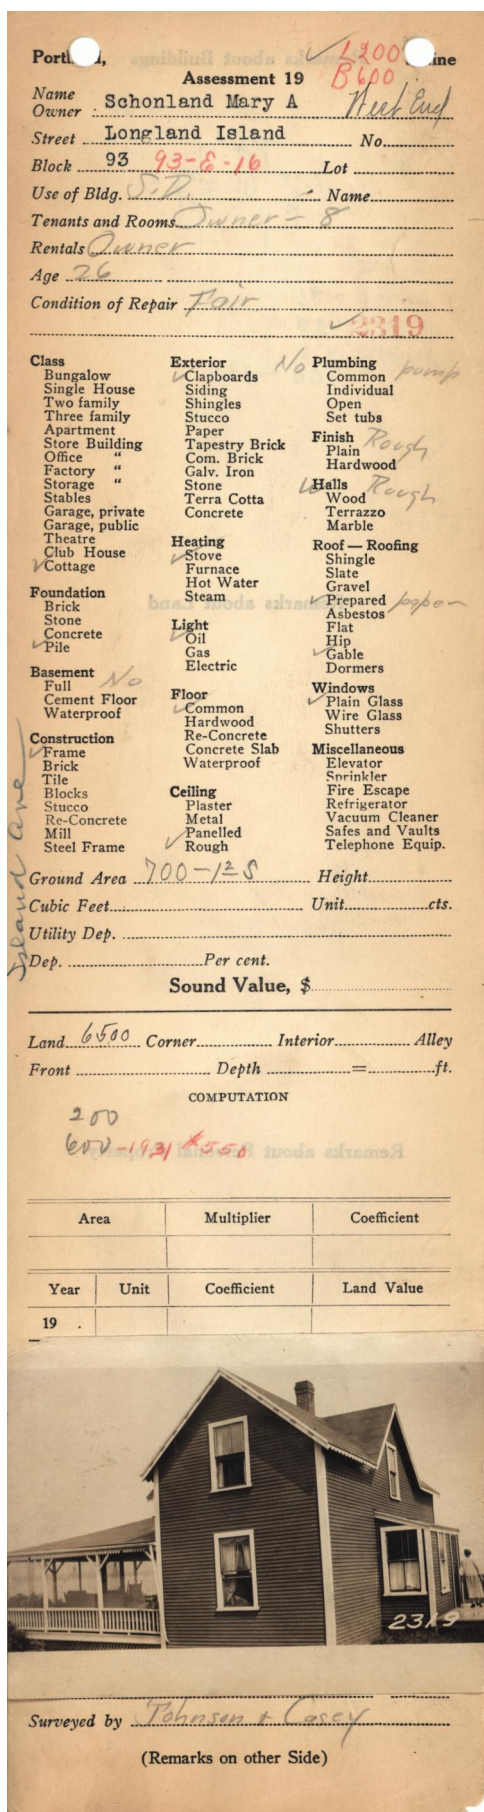 Portl d, L200 ine
Assessment 19 B600
Name
Owner Schonland Mary A West End
Street Longland Island No.
Block 93 93-E-16 Lot
Use of Bldg. S.D. Name
Tenants and Rooms Owner - 8
Rentals Owner
Age 26
Condition of Repair Fair
2319
Class
Bungalow
Single House
Two family
Three family
Apartment
Store Building
Office “
Factory “
Storage “
Stables
Garage, private
Garage, public
Theatre
Club House
✓Cottage
Foundation
Brick
Stone
Concrete
✓Pile
Basement No
Full
Cement Floor
Waterproof
Construction
✓Frame
Brick
Tile
Blocks
Stucco
Re-Concrete
Mill
Steel Frame
Exterior
✓Clapboards
Siding
Shingles
Stucco
Paper
Tapestry Brick
Com. Brick
Galv. Iron
Stone
Terra Cotta
Concrete
Heating
✓Stove
Furnace
Hot Water
Steam
Light
✓Oil
Gas
Electric
Floor
✓Common
Hardwood
Re-Concrete
Concrete Slab
Waterproof
Ceiling
Plaster
Metal
Panelled
✓Rough
No Plumbing
Common pump
Individual
Open
Set tubs
Finish Rough
Plain
Hardwood
✓Halls Rough
Wood
Terrazzo
Marble
Roof — Roofing
Shingle
Slate
Gravel
✓Prepared paper
Asbestos
Flat
Hip
✓Gable
Dormers
Windows
✓Plain Glass
Wire Glass
Shutters
Miscellaneous
Elevator
Sprinkler
Fire Escape
Refrigerator
Vacuum Cleaner
Safes and Vaults
Telephone Equip.
Island Ave
Ground Area 700-1½ S Height
Cubic Feet Unit cts.
Utility Dep.
Dep. Per cent.
Sound Value, $
Land 6500 Corner Interior Alley
Front Depth = ft.
COMPUTATION
200
600 -1931 $550
Area Multiplier Coefficient
Year Unit Coefficient Land Value
19 .
2319
Surveyed by Johnson & Casey
(Remarks on other Side)